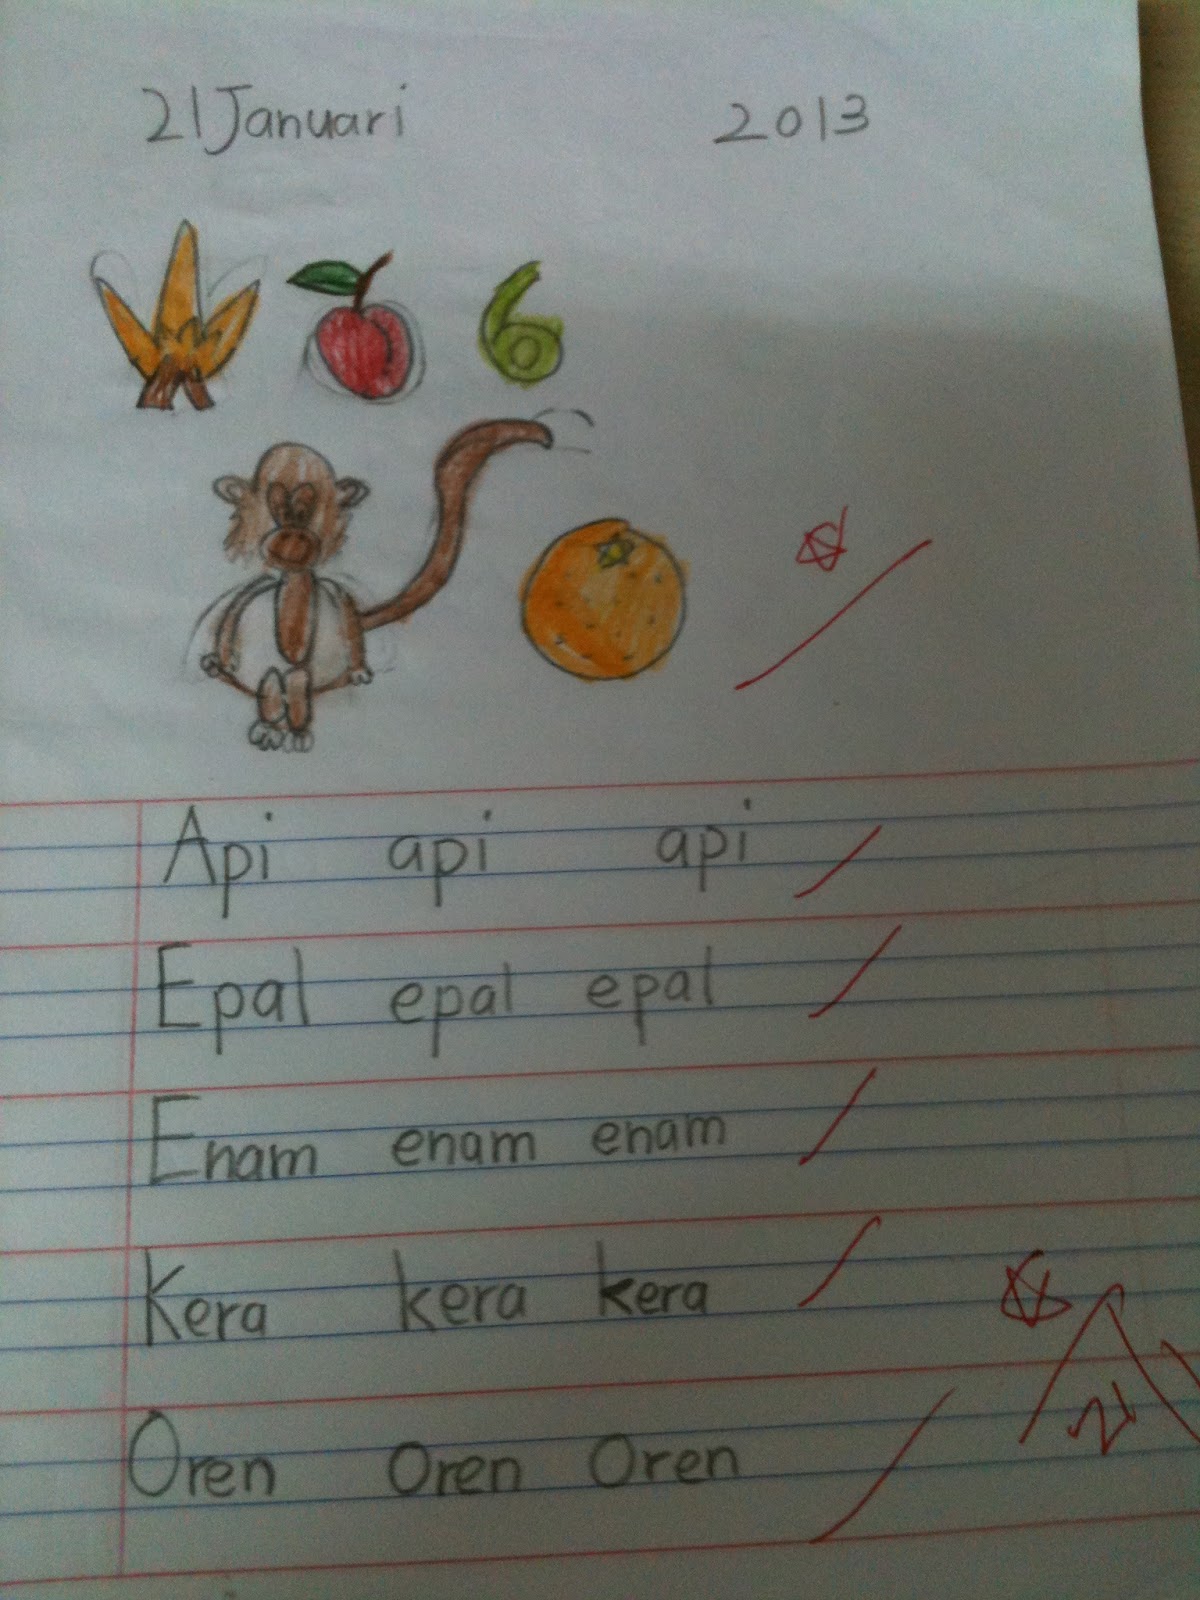 21 Januari 2013
6
Api api api
Epal epal epal
Enam enam enam
Kera kera kera
Oren Oren Oren
21